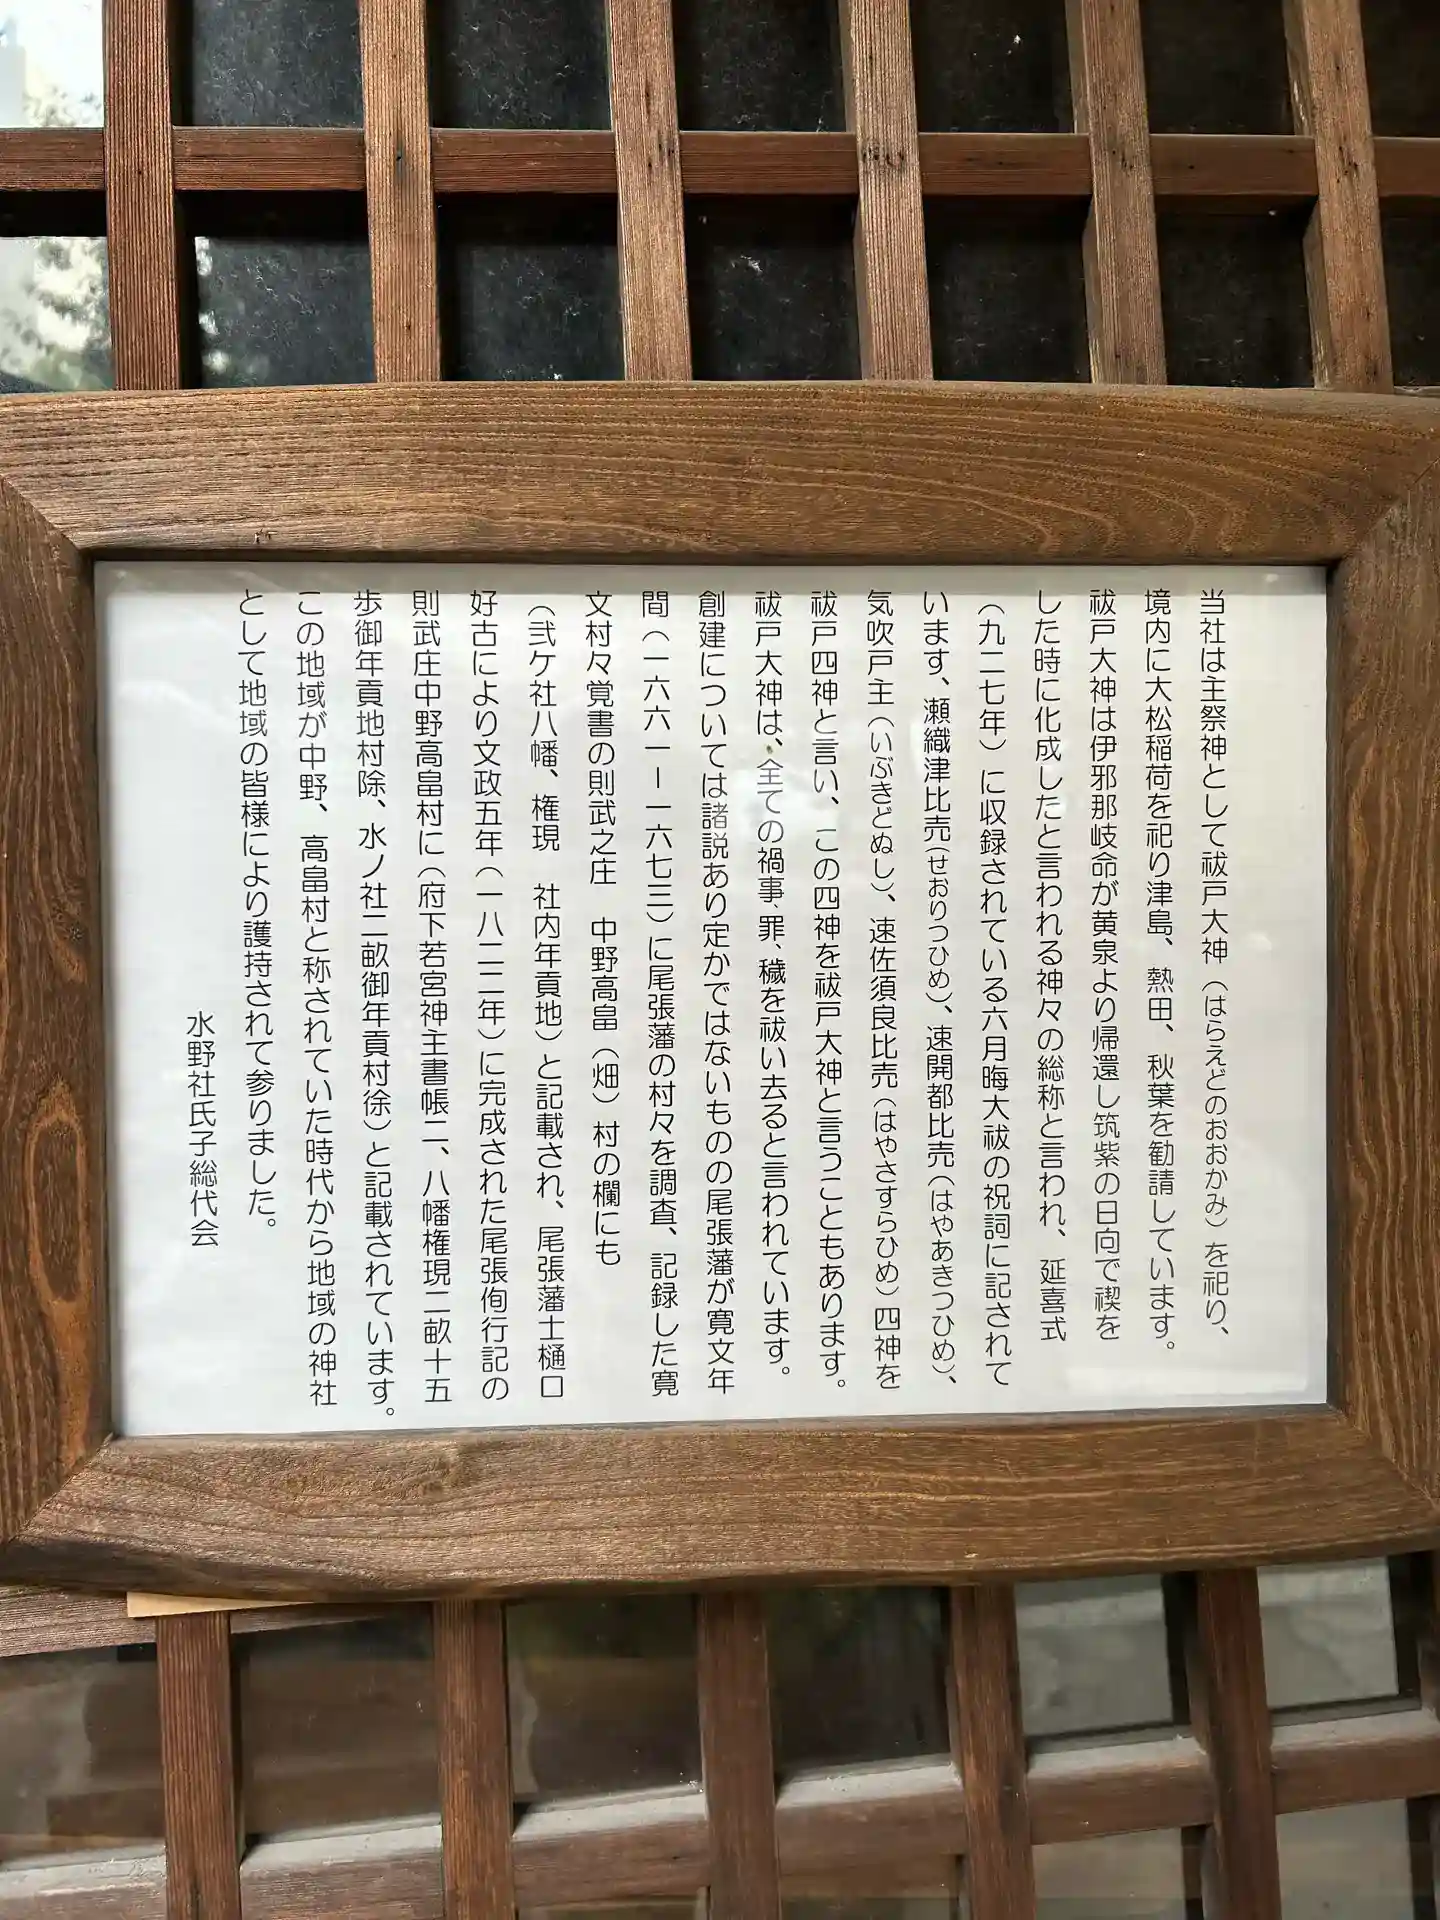 当社は主祭神として祓戸大神（はらえどのおおかみ）を祀り、
境内に大松稲荷を祀り津島、熱田、秋葉を勧請しています。
祓戸大神は伊邪那岐命が黄泉より帰還し筑紫の日向で禊を
した時に化成したと言われる神々の総称と言われ、延喜式
（九二七年）に収録されている六月晦大祓の祝詞に記されて
います、瀬織津比売（せおりつひめ）、速開都比売（はやあきつひめ）、
気吹戸主（いぶきどぬし）、速佐須良比売（はやさすらひめ）四神を
祓戸四神と言い、この四神を祓戸大神と言うこともあります。
祓戸大神は、全ての禍事、罪、穢を祓い去ると言われています。
創建については諸説あり定かではないものの尾張藩が寛文年
間（一六六一－一六七三）に尾張藩の村々を調査、記録した寛
文村々覚書の則武之庄　中野高畠（畑）村の欄にも
（弐ケ社八幡、権現　社内年貢地）と記載され、尾張藩士樋口
好古により文政五年（一八二二年）に完成された尾張侚行記の
則武庄中野高畠村に（府下若宮神主書帳二、八幡権現二畝十五
歩御年貢地村除、水ノ社二畝御年貢村徐）と記載されています。
この地域が中野、高畠村と称されていた時代から地域の神社
として地域の皆様により護持されて参りました。
水野社氏子総代会